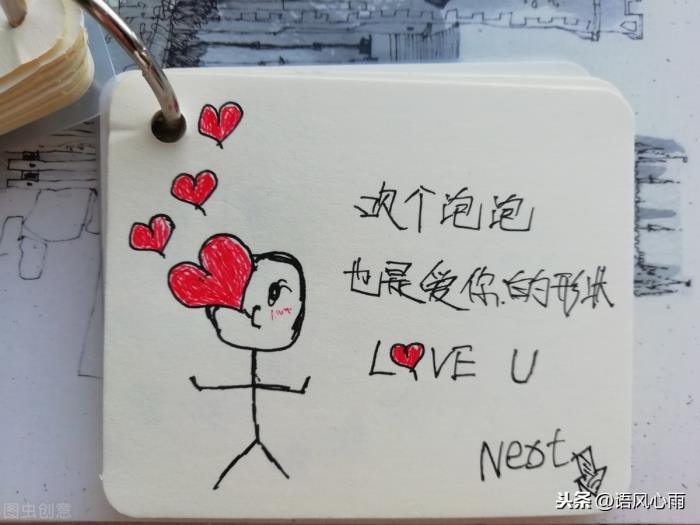 吹个泡泡
也是爱你的形状
LOVE U
Next
图虫创意
头条 @语风心雨